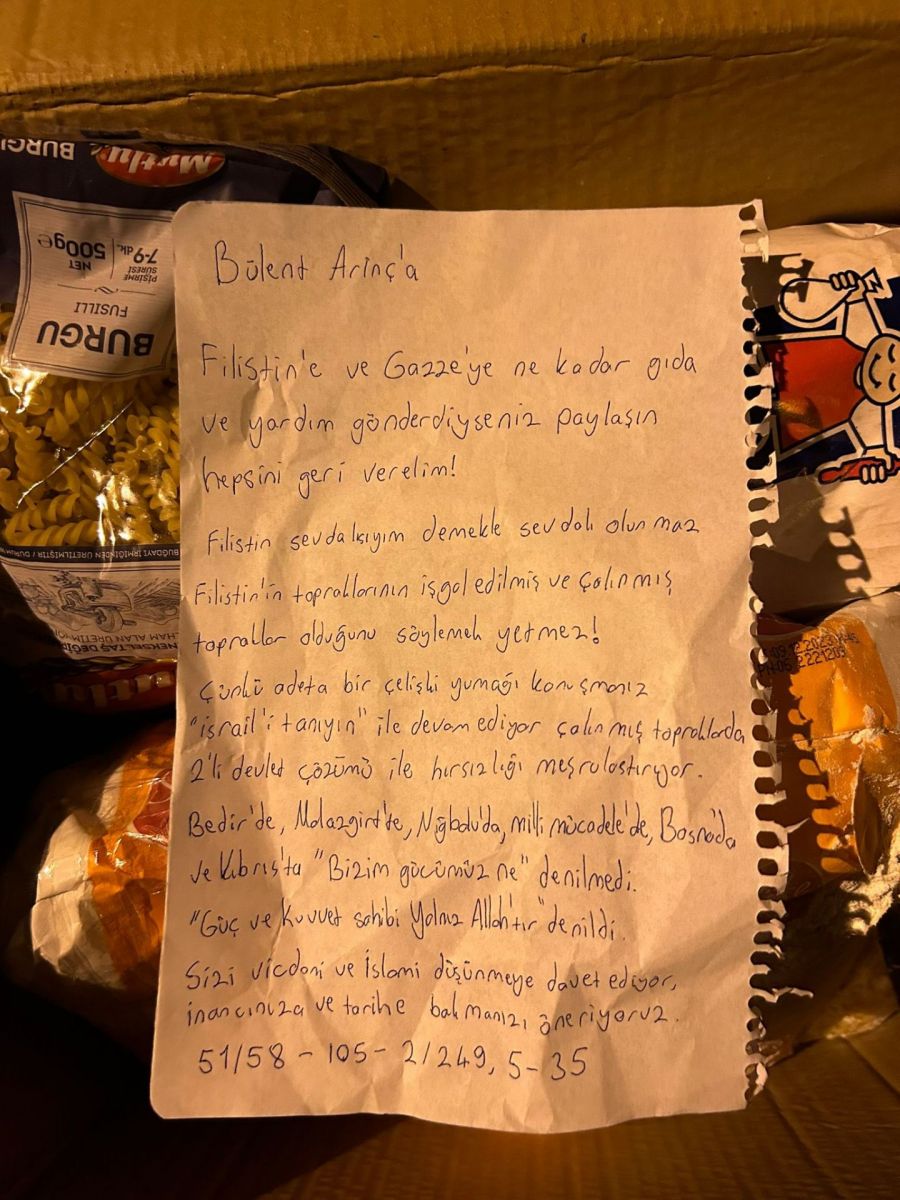 Mutlu
BURGU
BURGU
FUSILLI
PİŞİRME
SÜRESİ
7-9 dk.
NET
500g e
Bülent Arinç'a
Filistin'e ve Gazze'ye ne kadar gıda
ve yardım gönderdiyseniz paylaşın
hepsini geri verelim!
Filistin sevdalısıyım demekle sevdalı olunmaz
Filistin'in topraklarının işgal edilmiş ve çalınmış
topraklar olduğunu söylemek yetmez!
Çünkü adeta bir çelişki yumağı konuşmanız
"israil'i tanıyın" ile devam ediyor çalınmış topraklarda
2'li devlet çözümü ile hırsızlığı meşrulaştırıyor.
Bedir'de, Malazgirt'te, Niğbolu'da, milli mücadele'de, Bosna'da
ve Kıbrıs'ta "Bizim gücümüz ne" denilmedi.
"Güç ve Kuvvet sahibi Yalnız Allah'tır" denildi.
Sizi vicdani ve İslami düşünmeye davet ediyor,
inancınıza ve tarihe bakmanızı öneriyoruz.
51/58 - 105 - 2/249, 5-35